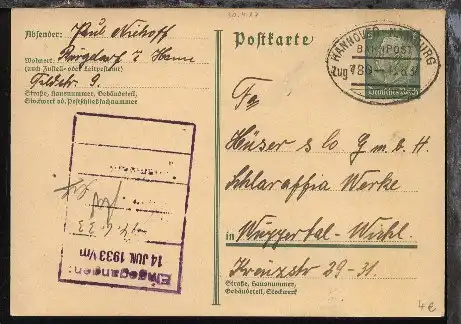 Absender: Paul Niehoff
Wohnort: Burgdorf i Hann
(auch Zustell- oder Leitpostamt)
Feldstr. 9.
Straße, Hausnummer, Gebäudeteil,
Stockwerk od. Postschließfachnummer
Postkarte
HANNOVER
BURG
BAHNPOST
Zug
Deutsches Reich
Fa
Hüser & Co G.m.b.H.
Schlaraffia Werke
in Wuppertal-Wichl.
Kreuzstr 29-31.
Straße, Hausnummer,
Gebäudeteil, Stockwerk
Eingegangen:
14 JUN 1933 Vm
4e